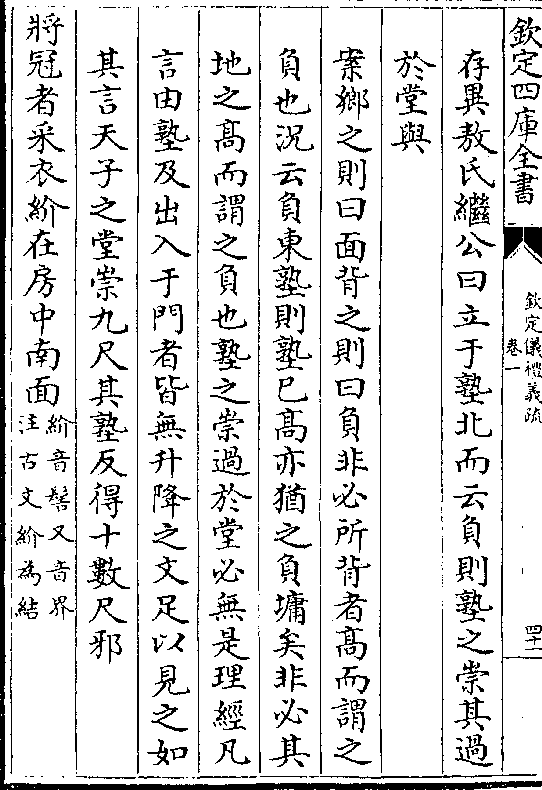 欽定四庫全書
欽定儀禮義疏
卷一
四十一
存異敖氏繼公曰立于塾北而云負則塾之崇其過
於堂與
案鄉之則曰面背之則曰負非必所背者髙而謂之
負也況云負東塾則塾已髙亦猶之負墉矣非必其
地之髙而謂之負也塾之崇過於堂必無是理經凡
言由塾及出入于門者皆無升降之文足以見之如
其言天子之堂崇九尺其塾反得十數尺邪
將冠者采衣紒在房中南面
紒音髻又音界
注古文紒為結